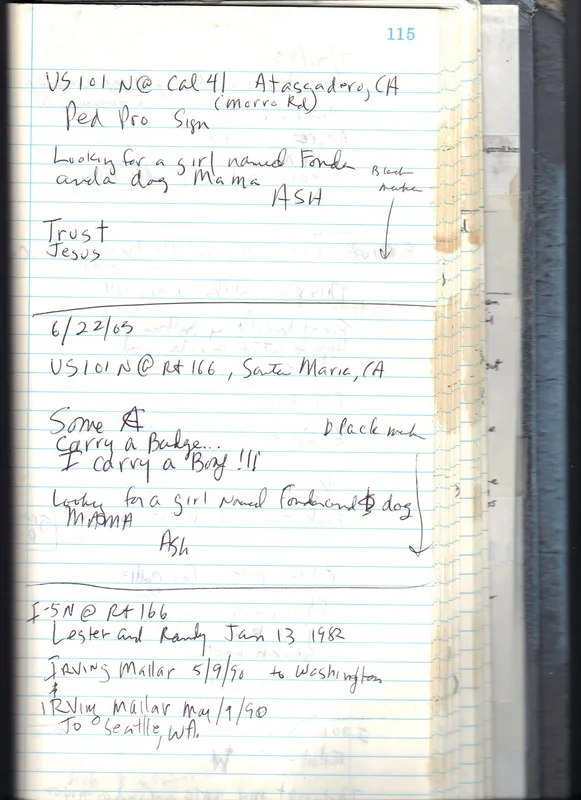 115
US 101 N@ Cal 41 Atascadero, CA
(Morro Rd)
Ped Pro Sign
Looking for a girl named Fonda
and a dog Mama
ASH
Black
marker
Trust
Jesus
6/22/05
US 101 N@ Rt 166, Santa Maria, CA
Some
carry a Badge...
I carry a Bong !!!
black mark
Looking for a girl named Fonda and dog
MAMA
Ash
I-5N@ Rt 166
Lester and Randy Jan 13 1982
IRVING Mallar 5/9/90 to Washington
&
IRVing Mallar May/9/90
To Seattle, WA.